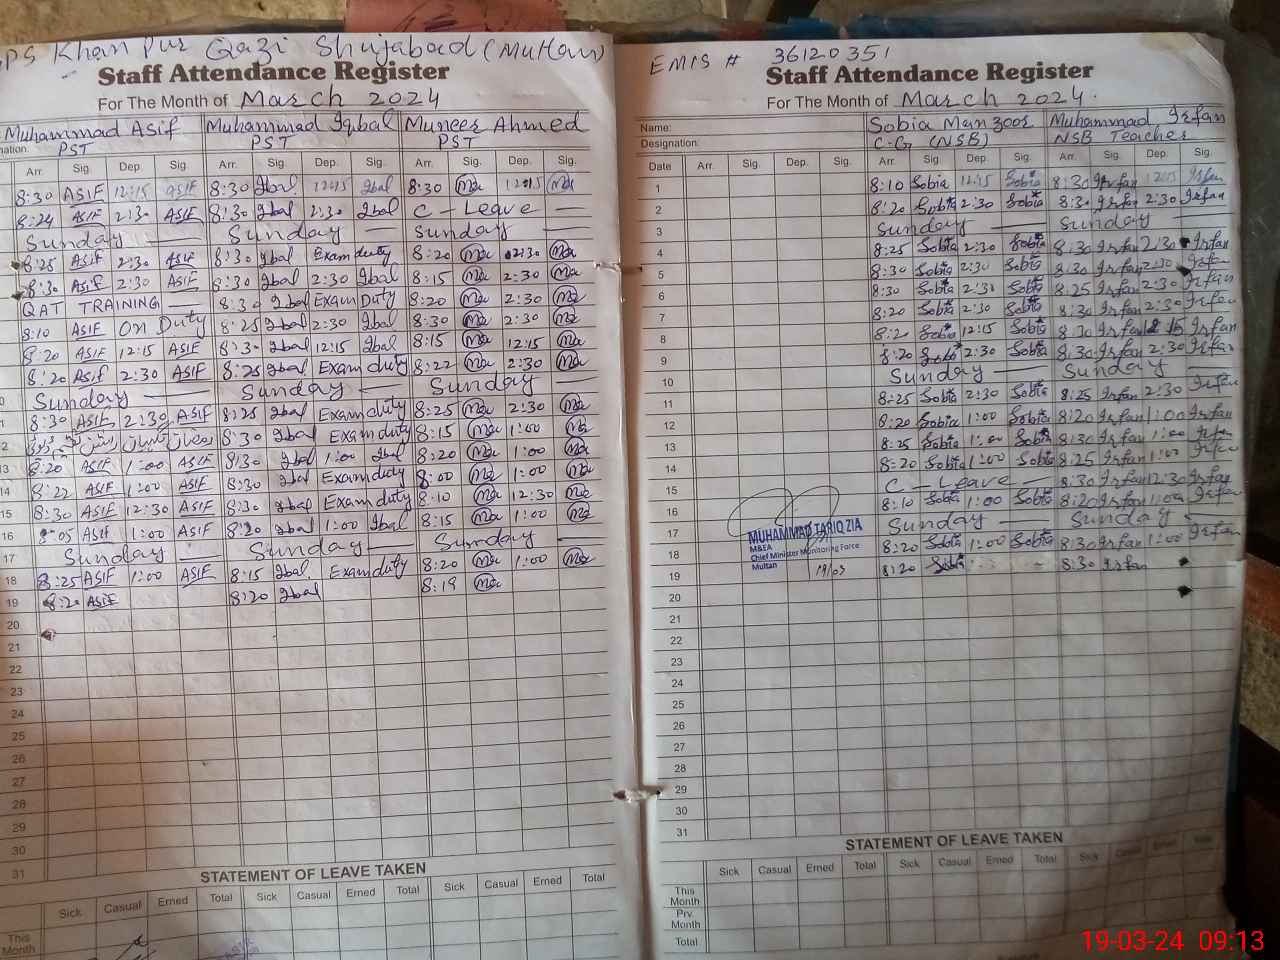 PS Khan Pur Qazi Shujabad (Multan)
Staff Attendance Register
For The Month of March 2024
Muhammad Asif Muhammad Iqbal Muneer Ahmed
nation: PST PST PST
Arr. Sig. Dep. Sig. Arr. Sig. Dep. Sig. Arr. Sig. Dep. Sig.
8:30 ASIF 12:15 ASIF 8:30 Iqbal 12:15 Iqbal 8:30 12:15
8:24 ASIF 2:30 ASIF 8:30 Iqbal 2:30 Iqbal C - Leave -
Sunday Sunday Sunday
8:25 ASIF 2:30 ASIF 8:30 Iqbal Exam duty 8:20 02:30
8:30 ASIF 2:30 ASIF 8:30 Iqbal 2:30 Iqbal 8:15 2:30
QAT TRAINING 8:30 Iqbal Exam Duty 8:20 2:30
8:10 ASIF On Duty 8:25 Iqbal 2:30 Iqbal 8:30 2:30
8:20 ASIF 12:15 ASIF 8:30 Iqbal 12:15 Iqbal 8:15 12:15
8:20 ASIF 2:30 ASIF 8:25 Iqbal Exam duty 8:22 2:30
Sunday Sunday Sunday
8:30 ASIF 2:30 ASIF 8:25 Iqbal Exam duty 8:25 2:30
8:30 Iqbal Exam duty 8:15 1:00
13 8:20 ASIF 1:00 ASIF 8:30 Iqbal 1:00 Iqbal 8:20 1:00
14 8:22 ASIF 1:00 ASIF 8:30 Iqbal Exam duty 8:00 1:00
15 8:30 ASIF 12:30 ASIF 8:30 Iqbal Exam duty 8:10 12:30
16 8:05 ASIF 1:00 ASIF 8:20 Iqbal 1:00 Iqbal 8:15 1:00
17 Sunday Sunday Sunday
18 8:25 ASIF 1:00 ASIF 8:15 Iqbal Exam duty 8:20 1:00
19 8:20 ASIF 8:20 Iqbal 8:19
20
21
22
23
24
25
26
27
28
29
30
31
STATEMENT OF LEAVE TAKEN
Sick Casual Erned Total Sick Casual Erned Total Sick Casual Erned Total
This Month
EMIS # 36120351
Staff Attendance Register
For The Month of March 2024.
Name: Sobia Manzoor Muhammad Irfan
Designation: C.G (NSB) NSB Teacher
Date Arr. Sig. Dep. Sig. Arr. Sig. Dep. Sig. Arr. Sig. Dep. Sig.
1 8:10 Sobia 12:15 Sobia 8:30 Irfan 12:15 Irfan
2 8:20 Sobia 2:30 Sobia 8:30 Irfan 2:30 Irfan
3 Sunday Sunday
4 8:25 Sobia 2:30 Sobia 8:30 Irfan 2:30 Irfan
5 8:30 Sobia 2:30 Sobia 8:30 Irfan 2:30 Irfan
6 8:30 Sobia 2:30 Sobia 8:25 Irfan 2:30 Irfan
7 8:20 Sobia 2:30 Sobia 8:30 Irfan 2:30 Irfan
8 8:20 Sobia 12:15 Sobia 8:30 Irfan 12:15 Irfan
9 8:20 Sobia 2:30 Sobia 8:30 Irfan 2:30 Irfan
10 Sunday Sunday
11 8:25 Sobia 2:30 Sobia 8:25 Irfan 2:30 Irfan
12 8:20 Sobia 1:00 Sobia 8:20 Irfan 1:00 Irfan
13 8:25 Sobia 1:00 Sobia 8:30 Irfan 1:00 Irfan
14 8:20 Sobia 1:00 Sobia 8:25 Irfan 1:00 Irfan
15 C - Leave 8:30 Irfan 12:30 Irfan
16 8:10 Sobia 1:00 Sobia 8:20 Irfan 1:00 Irfan
17 Sunday Sunday
18 8:20 Sobia 1:00 Sobia 8:30 Irfan 1:00 Irfan
19 8:20 Sobia 8:30 Irfan
MUHAMMAD TARIQ ZIA
M&EA
Chief Minister Monitoring Force
Multan
19/03
20
21
22
23
24
25
26
27
28
29
30
31
STATEMENT OF LEAVE TAKEN
Sick Casual Erned Total Sick Casual Erned Total Sick Casual Erned
This Month
Prv. Month
Total
19-03-24 09:13